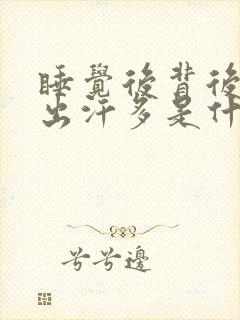 睡覺後背後
出汗多是什
兮兮邊